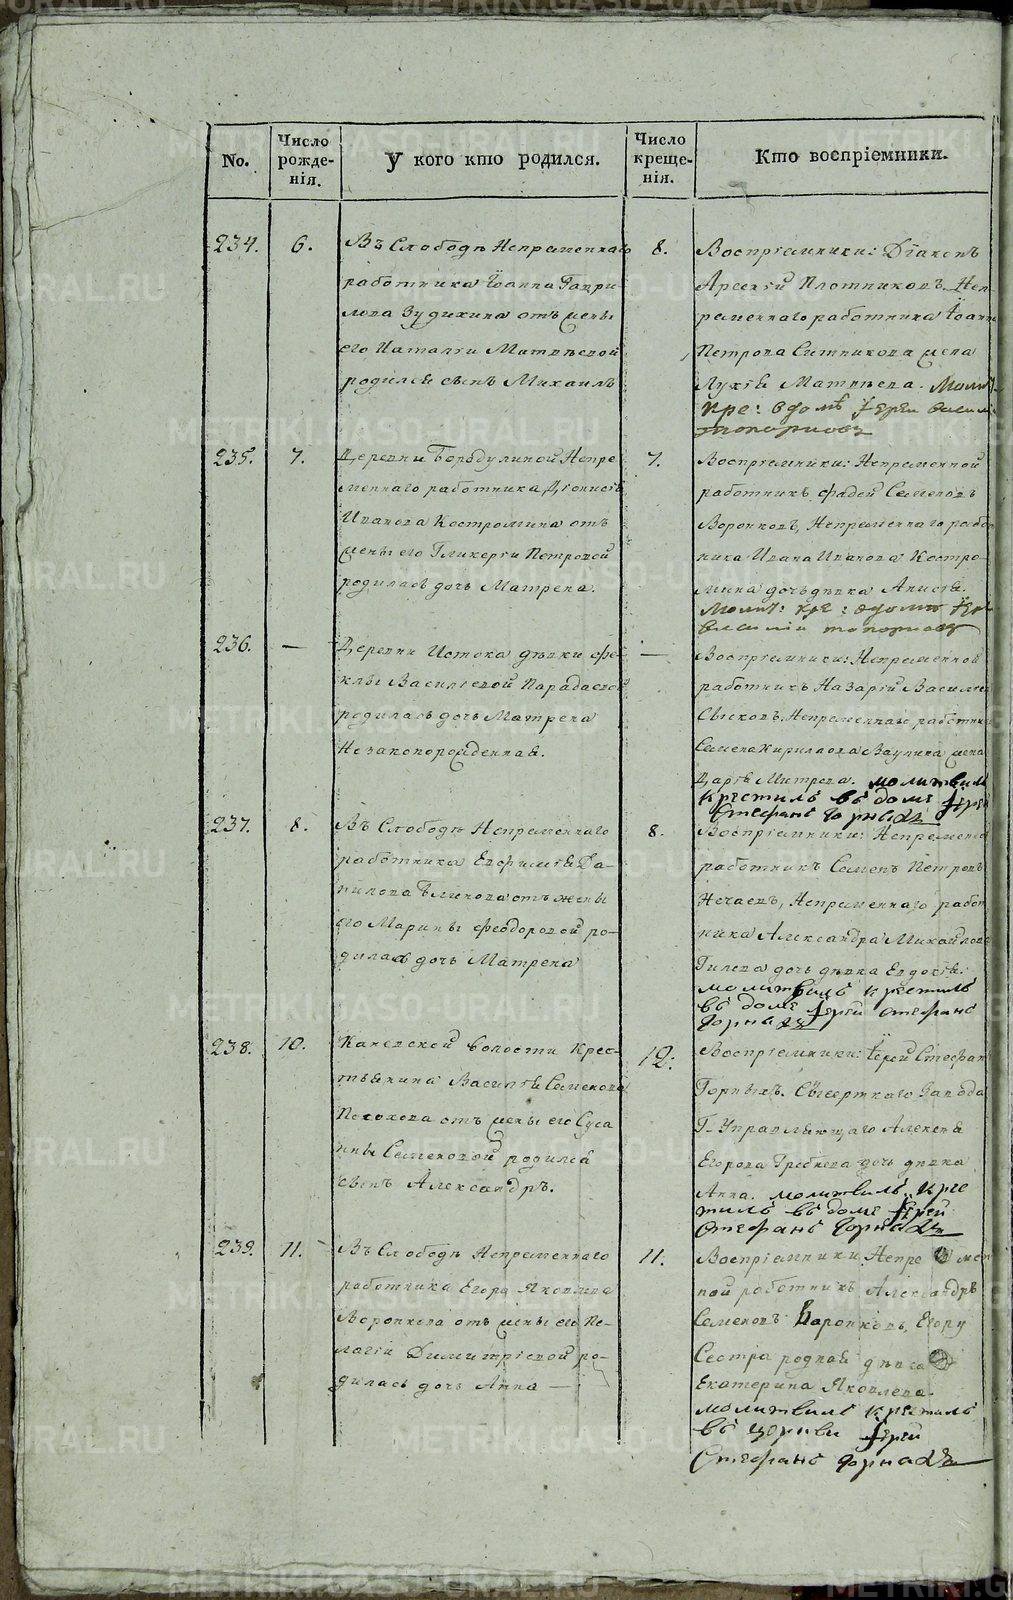 No.
Число рожде-нія.
У кого кто родился.
Число креще-нія.
Кто воспріемники.
234.
6.
Въ Слободѣ Непременнаго
работника Іоанна Гаври-
лова Зудихина отъ жены
его Наталіи Матвѣевой
родился сынъ Михаилъ
8.
Воспріемники: Діаконъ
Арсеній Плотниковъ, Неп-
ременнаго работника Іоанна
Петрова Ситникова жена
Лукія Матвѣева. Молит:
кре: в домѣ Іерей Василій
Топорковъ
235.
7.
Деревни Бородулиной Непре
меннаго работника Діонисія
Иванова Костромина отъ
жены его Гликеріи Петровой
родилась дочь Матрена.
7.
Воспріемники: Непременной
работникъ Фадей Семеновъ
Воронковъ, Непременнаго работ
ника Ивана Иванова Костро-
мина дочь дѣвка Анисія.
Молит: кре: в доме Іерей
Василій Топорковъ
236.
—
Деревни Истока дѣвки Фе-
клы Васильевой Парадаевой
родилась дочь Матрена
Незаконорожденная.
—
Воспріемники: Непременной
работникъ Назарій Васильевъ
Сысковъ, Непременнаго работника
Семена Кириллова Ваулина жена
Дарья Митрева. молитвилъ
крестилъ въ доме Іерей
Стефанъ Горныхъ
237.
8.
Въ Слободѣ Непременнаго
работника Евфимія Да-
нилова отъ жены
его Марины Феодоровой ро-
дилась дочь Матрена
8.
Воспріемники: Непременной
работникъ Семенъ Петровъ
Нечаевъ, Непременнаго работ
ника Александра Михайлова
Гилева дочь дѣвка Евдокія.
молитвилъ крестилъ
въ доме Іерей Стефанъ
Горныхъ
238.
10.
волости Крес-
тьянина Василья Семенова
отъ жены его Суса
нны Семеновой родился
сынъ Александръ.
12.
Воспріемники: Іерей Стефанъ
Горныхъ. Сысертскаго Завода
Г. Управляющаго Алексея
Егорова дочь дѣвка
Анна. молитвилъ, Кре
тилъ въ доме Іерей
Стефанъ Горныхъ
239.
11.
Въ Слободѣ Непременнаго
работника Егора Яковлева
Воронкова отъ жены его Пе-
лагіи Димитріевой ро-
дилась дочь Анна —
11.
Воспріемники Непремен
ной работникъ Александръ
Семеновъ Воронковъ, Егору
Сестра родная дѣвка
Екатерина Яковлева.
молитвилъ крестилъ
въ церкви Іерей
Стефанъ Горныхъ
METRIKI.GASO-URAL.RU